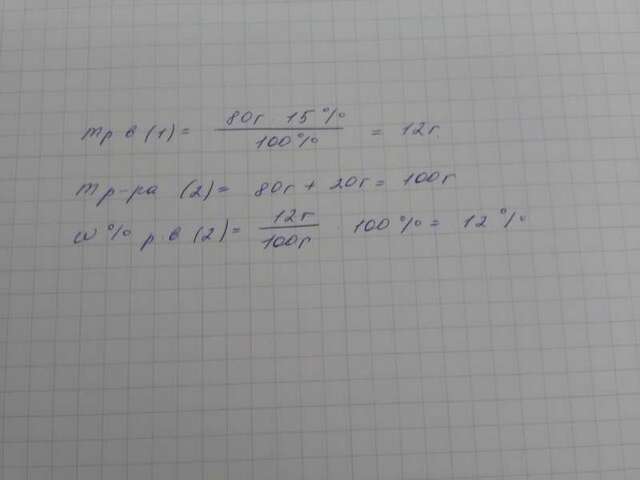 m р в (1) = 80г 15% / 100% = 12г.
m р-ра (2) = 80г + 20г = 100г
ω% р.в (2) = 12г / 100г 100% = 12%